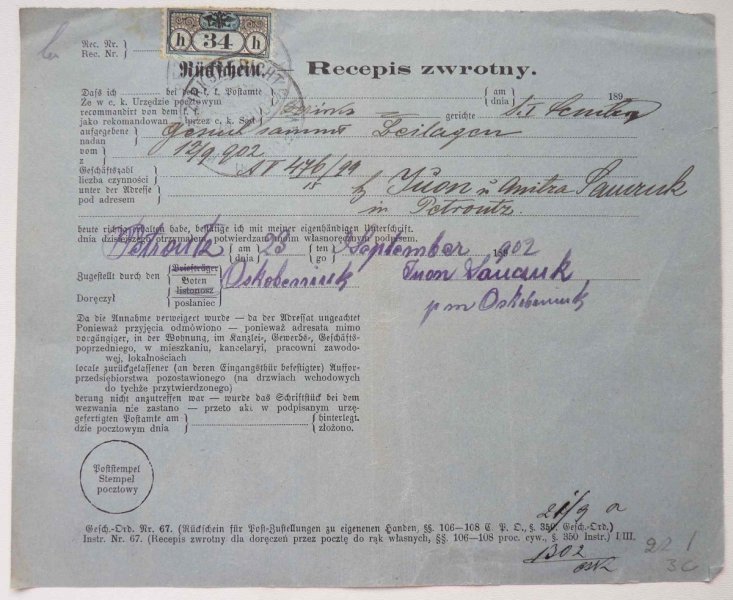 h 34 h
Rec. Nr.
Rec. Nr.
Rückschein. — Recepis zwrotny.
Daß ich bei dem k. k. Postamte am 189
Że w c. k. Urzędzie pocztowym dnia
recommandirt von dem k. k. gerichte
jako rekomandowan przez c. k. Sąd
aufgegebene Gesuch sammt Beilagen
nadan
vom 12/9 902
z
Geschäftszahl
liczba czynności
unter der Adresse Iuon u Anitza
pod adresem in Petroutz
heute richtig erhalten habe, bestätige ich mit meiner eigenhändigen Unterschrift.
dnia dzisiejszego otrzymałem, potwierdzam moim własnoręcznym podpisem.
Petroutz am 23 ten September 189 902
dnia go
Zugestellt durch den Briefträger Oskobeniuk Iuon
Boten
listonosz
Doręczył posłaniec
pm Oskobeniuk
Da die Annahme verweigert wurde — da der Adressat ungeachtet
Ponieważ przyjęcia odmówiono — ponieważ adresata mimo
vorgängiger, in der Wohnung, im Kanzlei-, Gewerbs-, Geschäfts-
poprzedniego, w mieszkaniu, kancelaryi, pracowni zawodo-
wej, lokalnościach
locale zurückgelassener (an deren Eingangsthür befestigter) Auffor-
przedsiębiorstwa pozostawionego (na drzwiach wchodowych
do tychże przytwierdzonego)
derung nicht anzutreffen war — wurde das Schriftstück bei dem
wezwania nie zastano — przeto akt w podpisanym urzę-
gefertigten Postamte am hinterlegt.
dzie pocztowym dnia złożono.
Poststempel
Stempel
pocztowy
Gesch.-Ord. Nr. 67. (Rückschein für Post-Zustellungen zu eigenenen Handen, §§. 106—108 C. P. O., §. 350. Gesch.-Ord.)
Instr. Nr. 67. (Recepis zwrotny dla doręczeń przez pocztę do rąk własnych, §§. 106—108 proc. cyw., §. 350 Instr.) I/III.
1302